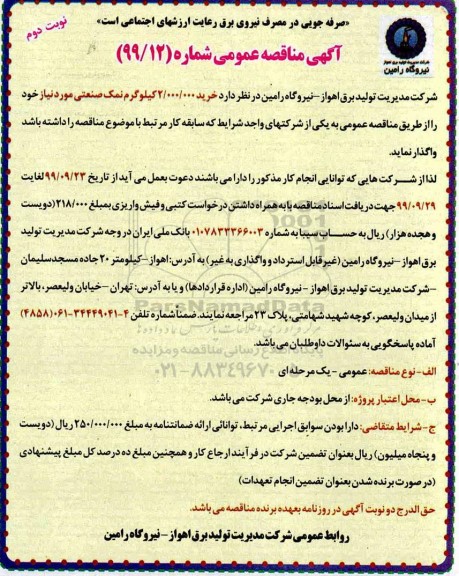 «صرفه جویی در مصرف نیروی برق رعایت ارزشهای اجتماعی است»
نوبت دوم
آگهی مناقصه عمومی شماره (۹۹/۱۲)
شرکت مدیریت تولید برق اهواز
نیروگاه رامین
شرکت مدیریت تولید برق اهواز – نیروگاه رامین در نظر دارد خرید ۲/۰۰۰/۰۰۰ کیلوگرم نمک صنعتی مورد نیاز خود
را از طریق مناقصه عمومی به یکی از شرکتهای واجد شرایط که سابقه کار مرتبط با موضوع مناقصه را داشته باشد
واگذار نماید.
لذا از شرکت هایی که توانایی انجام کار مذکور را دارا می باشند دعوت بعمل می آید از تاریخ ۹۹/۰۹/۲۳ لغایت
۹۹/۰۹/۲۹ جهت دریافت اسناد مناقصه با به همراه داشتن درخواست کتبی و فیش واریزی بمبلغ ۲۱۸/۰۰۰ (دویست
و هجده هزار) ریال به حساب سیبا به شماره ۰۱۰۷۸۳۳۳۶۶۰۰۳ بانک ملی ایران در وجه شرکت مدیریت تولید
برق اهواز – نیروگاه رامین (غیر قابل استرداد و واگذاری به غیر) به آدرس: اهواز – کیلومتر ۲۰ جاده مسجدسلیمان
– شرکت مدیریت تولید برق اهواز – نیروگاه رامین (اداره قراردادها) و یا به آدرس: تهران – خیابان ولیعصر، بالاتر
از میدان ولیعصر، کوچه شهید شهامتی، پلاک ۲۳ مراجعه نمایند. ضمناً شماره تلفن ۴-۳۴۴۴۹۰۴۱-۰۶۱ (۴۸۵۸)
آماده پاسخگویی به سئوالات داوطلبان می باشد.
الف – نوع مناقصه: عمومی – یک مرحله ای
ب – محل اعتبار پروژه: از محل بودجه جاری شرکت می باشد.
ج – شرایط متقاضی: دارا بودن سوابق اجرایی مرتبط، توانائی ارائه ضمانتنامه به مبلغ ۲۵۰/۰۰۰/۰۰۰ ریال (دویست
و پنجاه میلیون) ریال بعنوان تضمین شرکت در فرآیند ارجاع کار و همچنین مبلغ ده درصد کل مبلغ پیشنهادی
(در صورت برنده شدن بعنوان تضمین انجام تعهدات)
حق الدرج دو نوبت آگهی در روزنامه بعهده برنده مناقصه می باشد.
روابط عمومی شرکت مدیریت تولید برق اهواز – نیروگاه رامین
ParsNamadData
پایگاه اطلاع رسانی مناقصه و مزایده
۰۲۱-۸۸۳۴۹۶۷۰